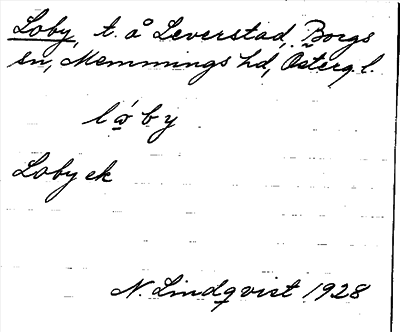 Loby, t. å Leverstad, Borgs
sn, Memmings hd, Österg.l.
lǻby
Loby ek
N. Lindqvist 1928